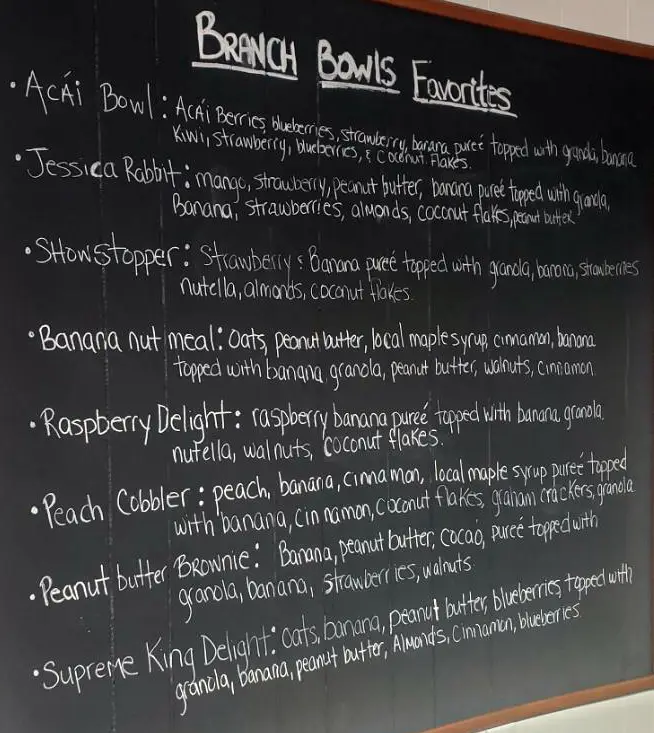 BRANCH BOWLS Favorites
• AcÁi Bowl: AcÁi Berries, blueberries, strawberry, banana pureé topped with granola, banana
Kiwi, strawberry, blueberries, & coconut flakes.
• Jessica Rabbit: mango, strawberry, peanut butter, banana pureé topped with granola,
Banana, strawberries, almonds, coconut flakes, peanut butter
• SHowstopper: Strawberry & Banana pureé topped with granola, banana, strawberries
nutella, almonds, coconut flakes.
• Banana nut meal: Oats, peanut butter, local maple syrup, cinnamon, banana
topped with banana, granola, peanut butter, walnuts, cinnamon.
• Raspberry Delight: raspberry banana pureé topped with banana, granola,
nutella, walnuts, coconut flakes.
• Peach Cobbler: peach, banana, cinnamon, local maple syrup pureé topped
with banana, cinnamon, coconut flakes, graham crackers, granola
• Peanut butter BROWNIE: Banana, peanut butter, cocao, pureé topped with
granola, banana, strawberries, walnuts.
• Supreme King Delight: oats, banana, peanut butter, blueberries topped with
granola, banana, peanut butter, Almonds, Cinnamon, blueberries.